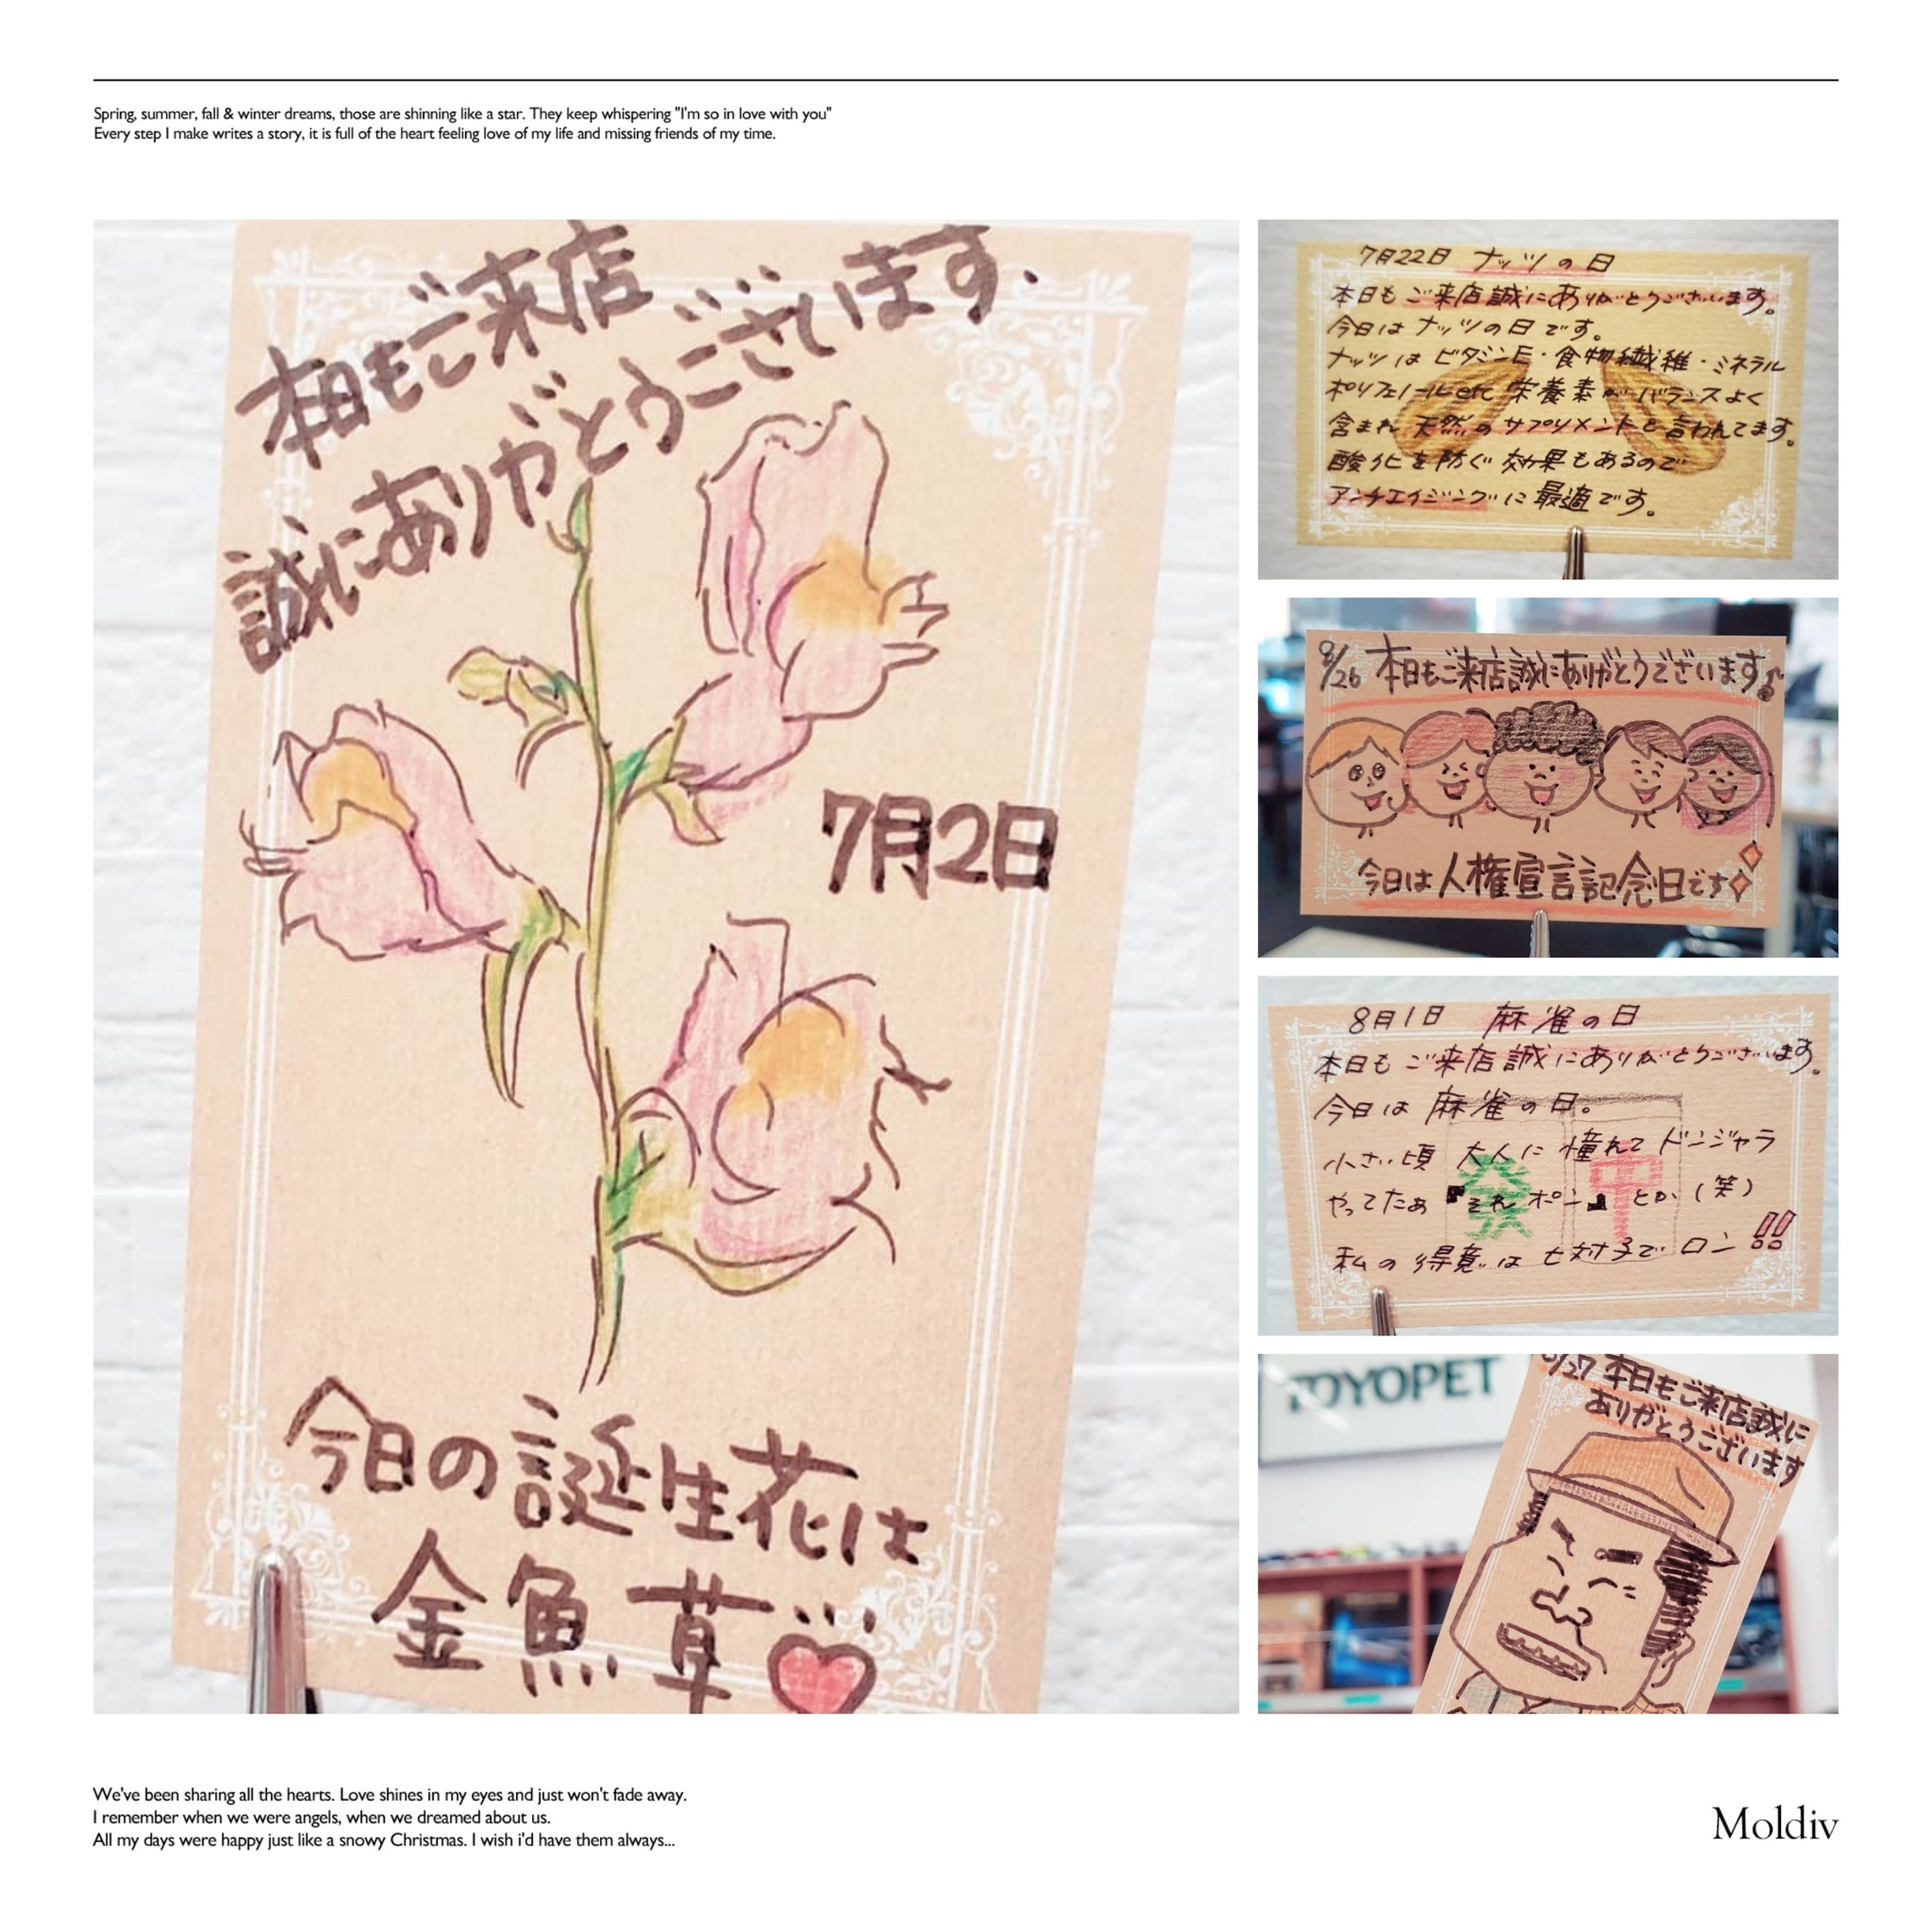 Spring, summer, fall & winter dreams, those are shinning like a star. They keep whispering "I'm so in love with you"
Every step I make writes a story, it is full of the heart feeling love of my life and missing friends of my time.
本日もご来店
誠にありがとうございます.
7月2日
今日の誕生花は
金魚草
7月22日 ナッツの日
本日もご来店誠にありがとうございます。
今日はナッツの日です。
ナッツはビタミンE・食物繊維・ミネラル
ポリフェノールetc 栄養素がバランスよく
含まれ天然のサプリメントと言われてます。
酸化を防ぐ効果もあるので
アンチエイジングに最適です。
8/26 本日もご来店誠にありがとうございます♪
今日は人権宣言記念日です
8月1日 麻雀の日
本日もご来店誠にありがとうございます。
今日は麻雀の日。
小さい頃 大人に憧れてドンジャラ
やってたぁ『それポン』とか(笑)
私の得意は七対子でロン!!
發 中
TOYOPET
/27 本日もご来店誠に
ありがとうございます
We've been sharing all the hearts. Love shines in my eyes and just won't fade away.
I remember when we were angels, when we dreamed about us.
All my days were happy just like a snowy Christmas. I wish i'd have them always...
Moldiv